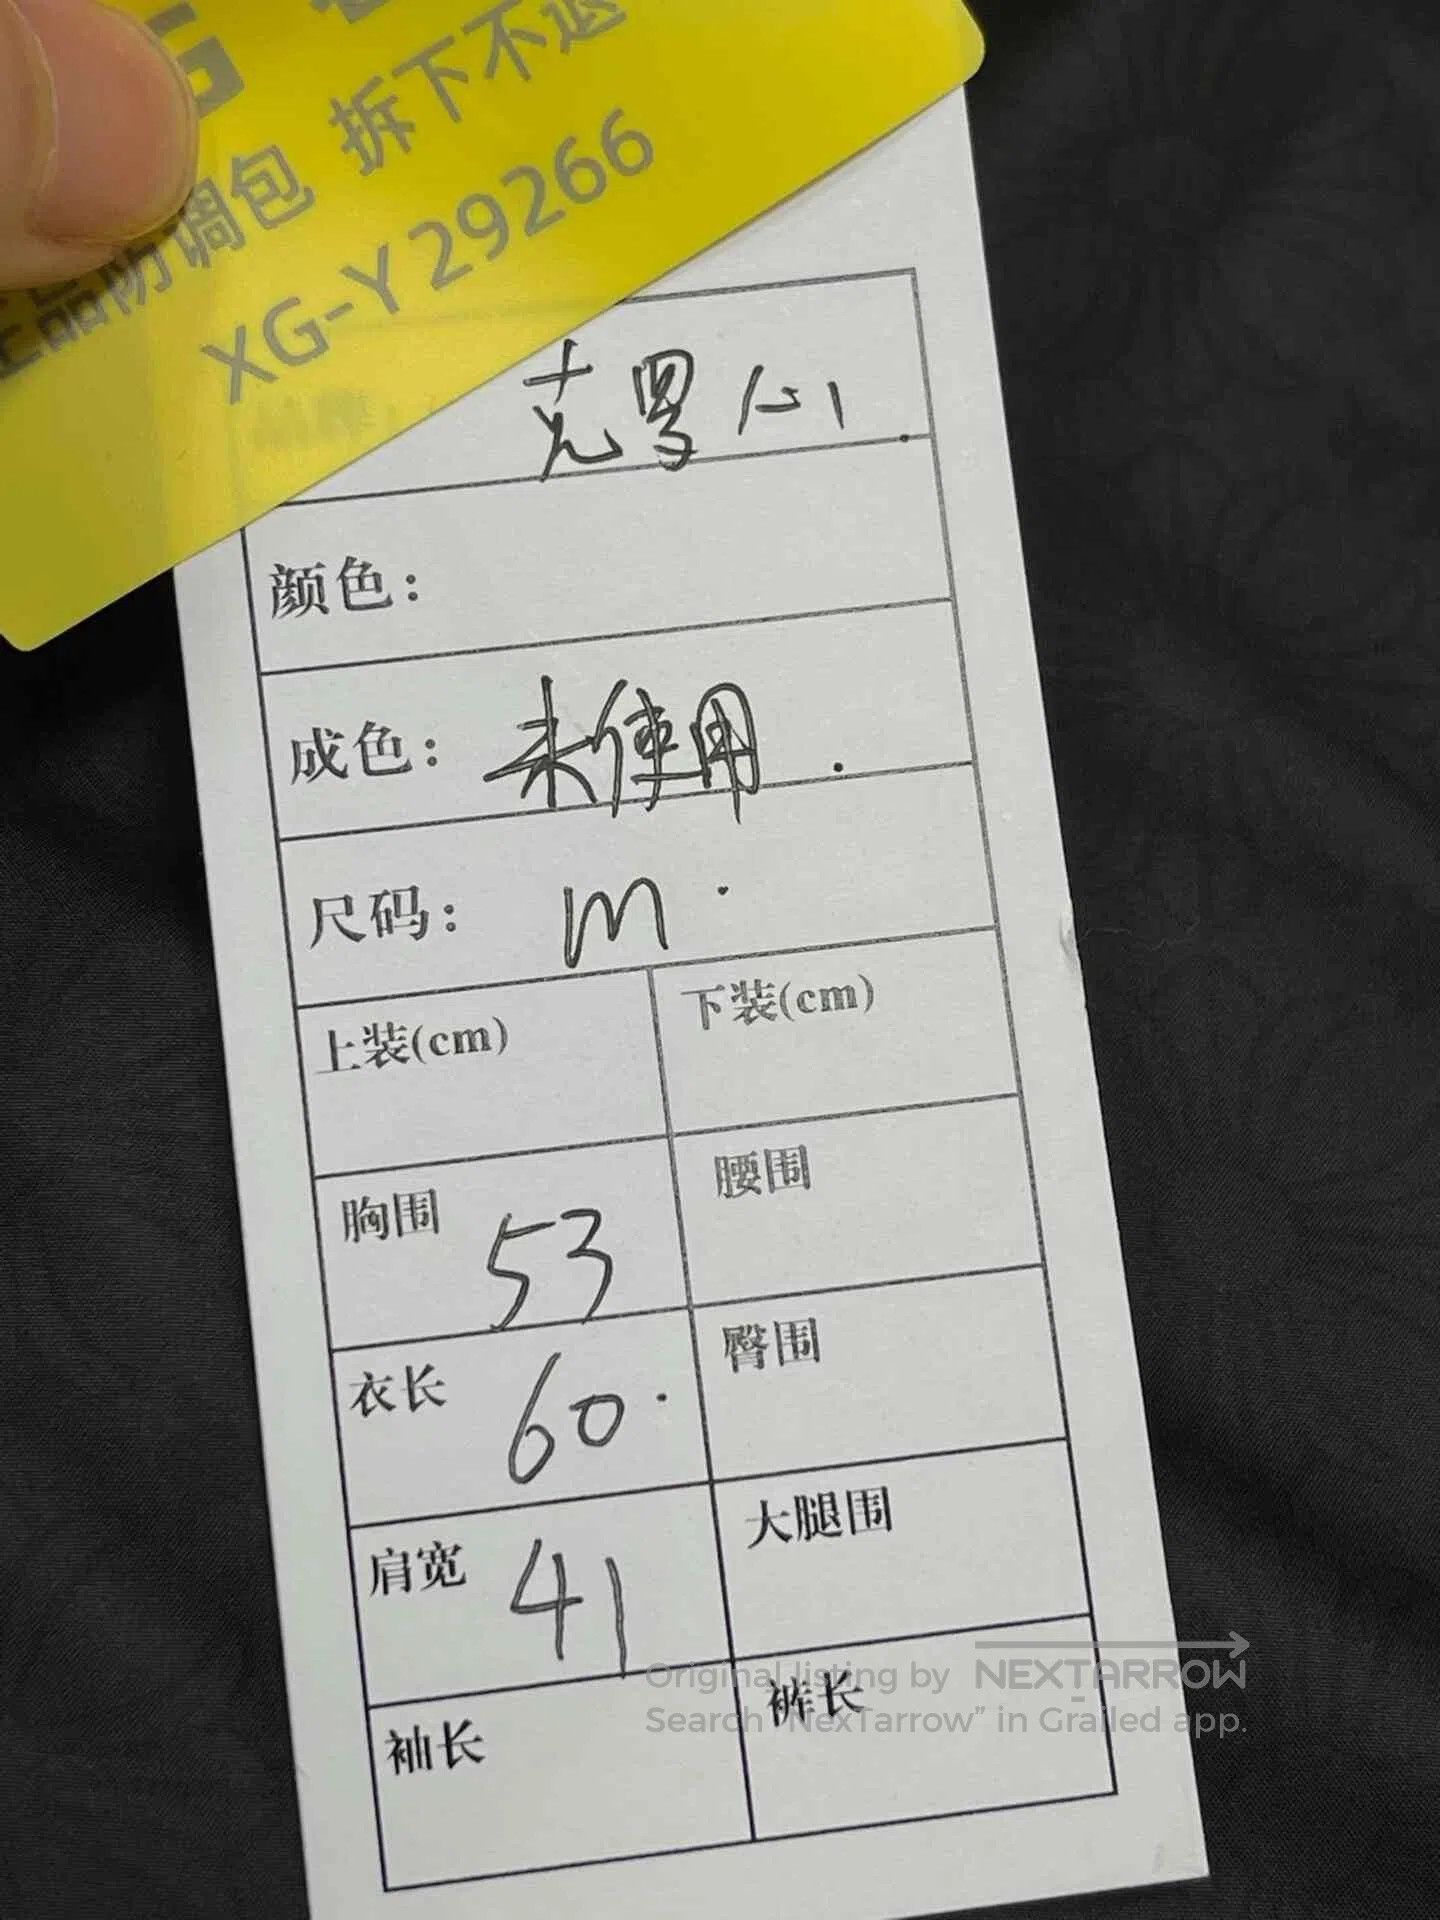 正品防调包 拆下不退
XG-Y29266
克罗心
颜色：
成色： 未使用
尺码： m
上装(cm) 下装(cm)
胸围 53 腰围
衣长 60 臀围
肩宽 41 大腿围
袖长 裤长
Original listing by NEXTARROW
Search "NexTarrow" in Grailed app.